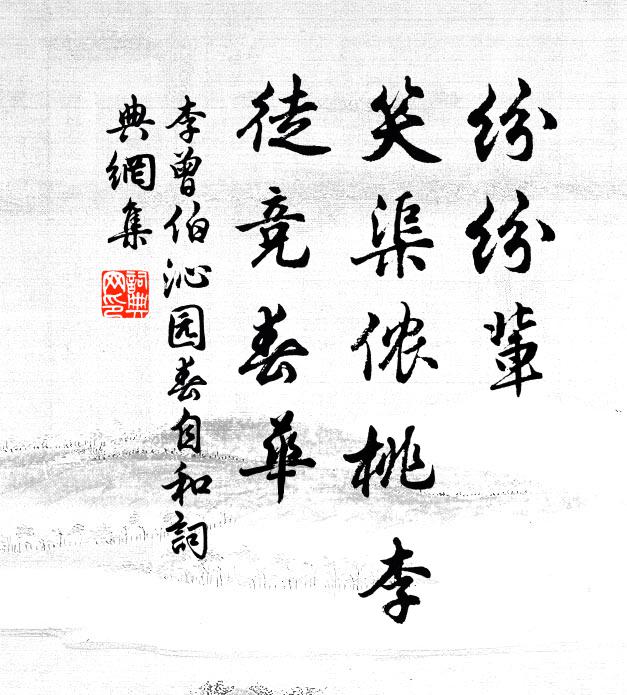 纷纷辈
笑渠侬桃李
徒竞春华
李曾伯沁园春自和詞
典網集
詞典網印